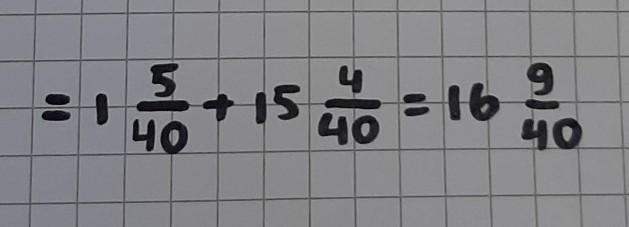 = 1 5/40 + 15 4/40 = 16 9/40